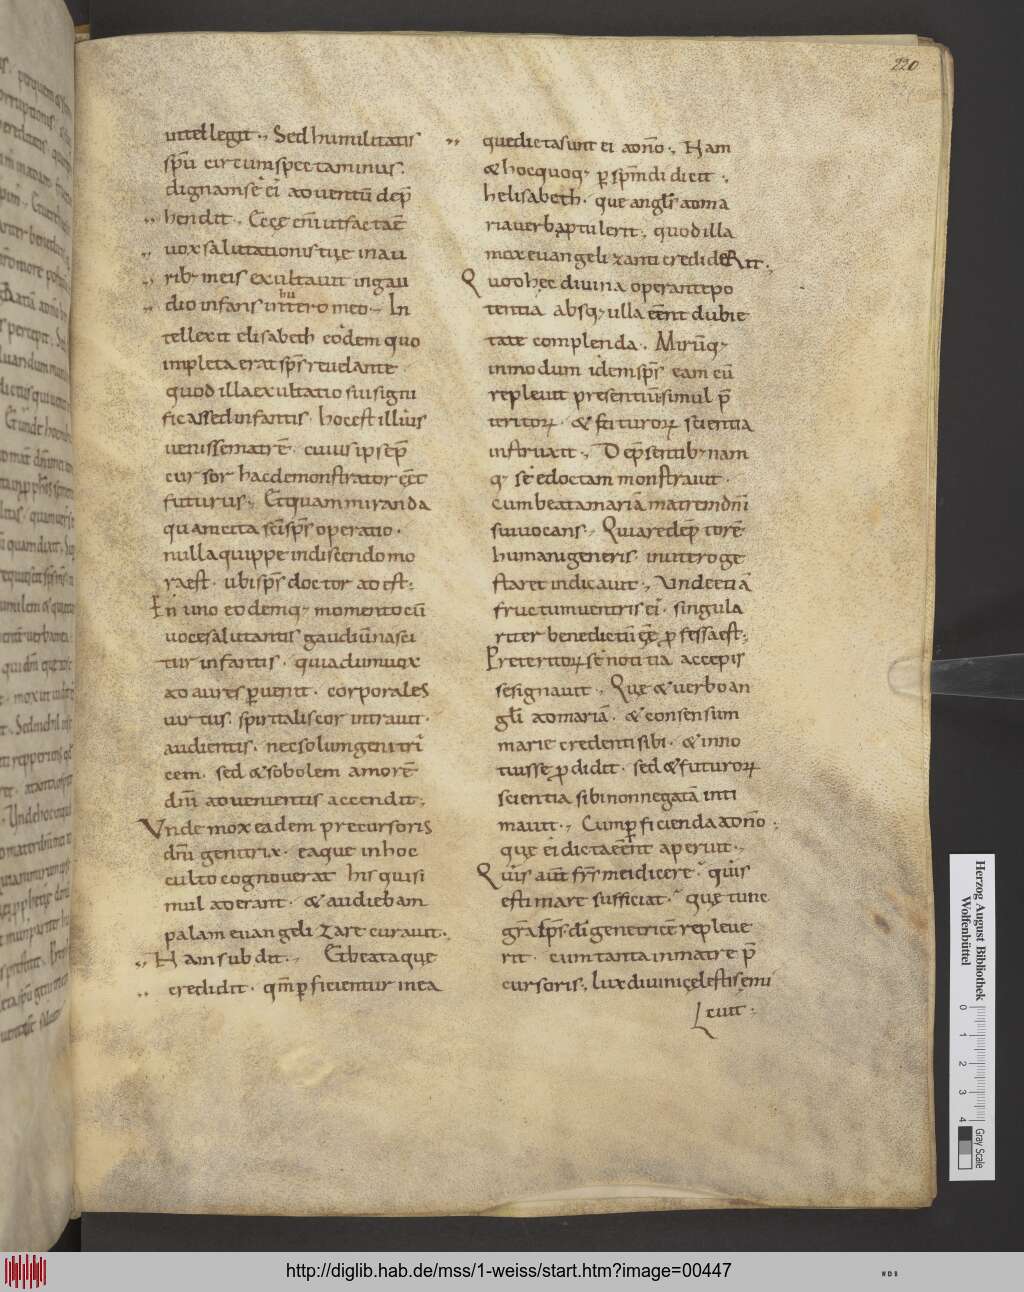 220
intellegit·, Sed humilitatis
sp̄u circumspectaminus·
dignam se ei aduentū dep̄
hendit·, Ecce eni ut factaē
uox salutationis tuę in au
rib; meis exultauit in gau
dio infans in utero meo·, In
tellexit elisabeth eodem quo
impleta erat sp̄s reuelante
quod illa exultatio sui signi
ficassed infantis· hoc est illius
uenisse matrē· cuius ipse p̄
cursor hac demonstrator eēt
futurus·, Et quam miranda
quam cita sc̄i sp̄s operatio·
nulla quippe indiscendo mo
ra est· ubi sp̄s doctor adest·
En uno eodemq; momento cū
uoce salutantis gaudiū nasci
tur infantis· quia dum uox
ad aures puenit· corporales
uirtus spiritalis cor intrauit·
audientis· nec solum genitri
cem· sed & sobolem amorē
dn̄i aduenientis accendit·,
Vnde mox eadem precursoris
dn̄i genitrix· eaque in hoc
culto cognouerat his qui si
mul aderant· & audiebam
palam euangelizare curauit·
Nam subdit·, Et beata quę
credidit· qm̄ pficientur in ea
que dicta sunt ei a dn̄o·, Nam
& hoc quoq; p sp̄m didicit·,
helisabeth· que angl̄s ad ma
ria uerba ptulerit·, quod illa
mox euangelizanti crediderit·,
Quod hec diuina operante po
tentia absq; ulla eent dubie
tate complenda· Mirūq;
inmodum idem sp̄s eam cū
repleuit presentiū simul p̄
teritorum· & futurorum scientia
instruxit·, De p̄sentib; nam
q; se edoctam monstrauit·
cum beata mariā matrem dn̄i
sui uocans·, Quia redēptorē
humani generis in utero ge
staret indicauit·, Vnde etiā
fructum uentris ei· singula
riter benedictū eē pfessa est·
Preteritorum se notitia accepis
se signauit·, Que & uerbo an
gl̄i ad mariā· & consensum
marie credentis ibi· & inno
tuisse pdidit· sed & futurorum
scientia sibi non negatā inti
mauit·, Cum pficienda a dn̄o
quę ei dicta eent aperuit·,
Quis aut fr̄s mei dicere· quis
estimare sufficiat· quę tunc
gr̄a sp̄s· di genetricē repleue
rit· cum tanta in matre p̄
cursoris·, lux diuini celestis emi
cuit·
Herzog August Bibliothek
Wolfenbüttel
0 1 2 3 4
Gray Scale
http://diglib.hab.de/mss/1-weiss/start.htm?image=00447